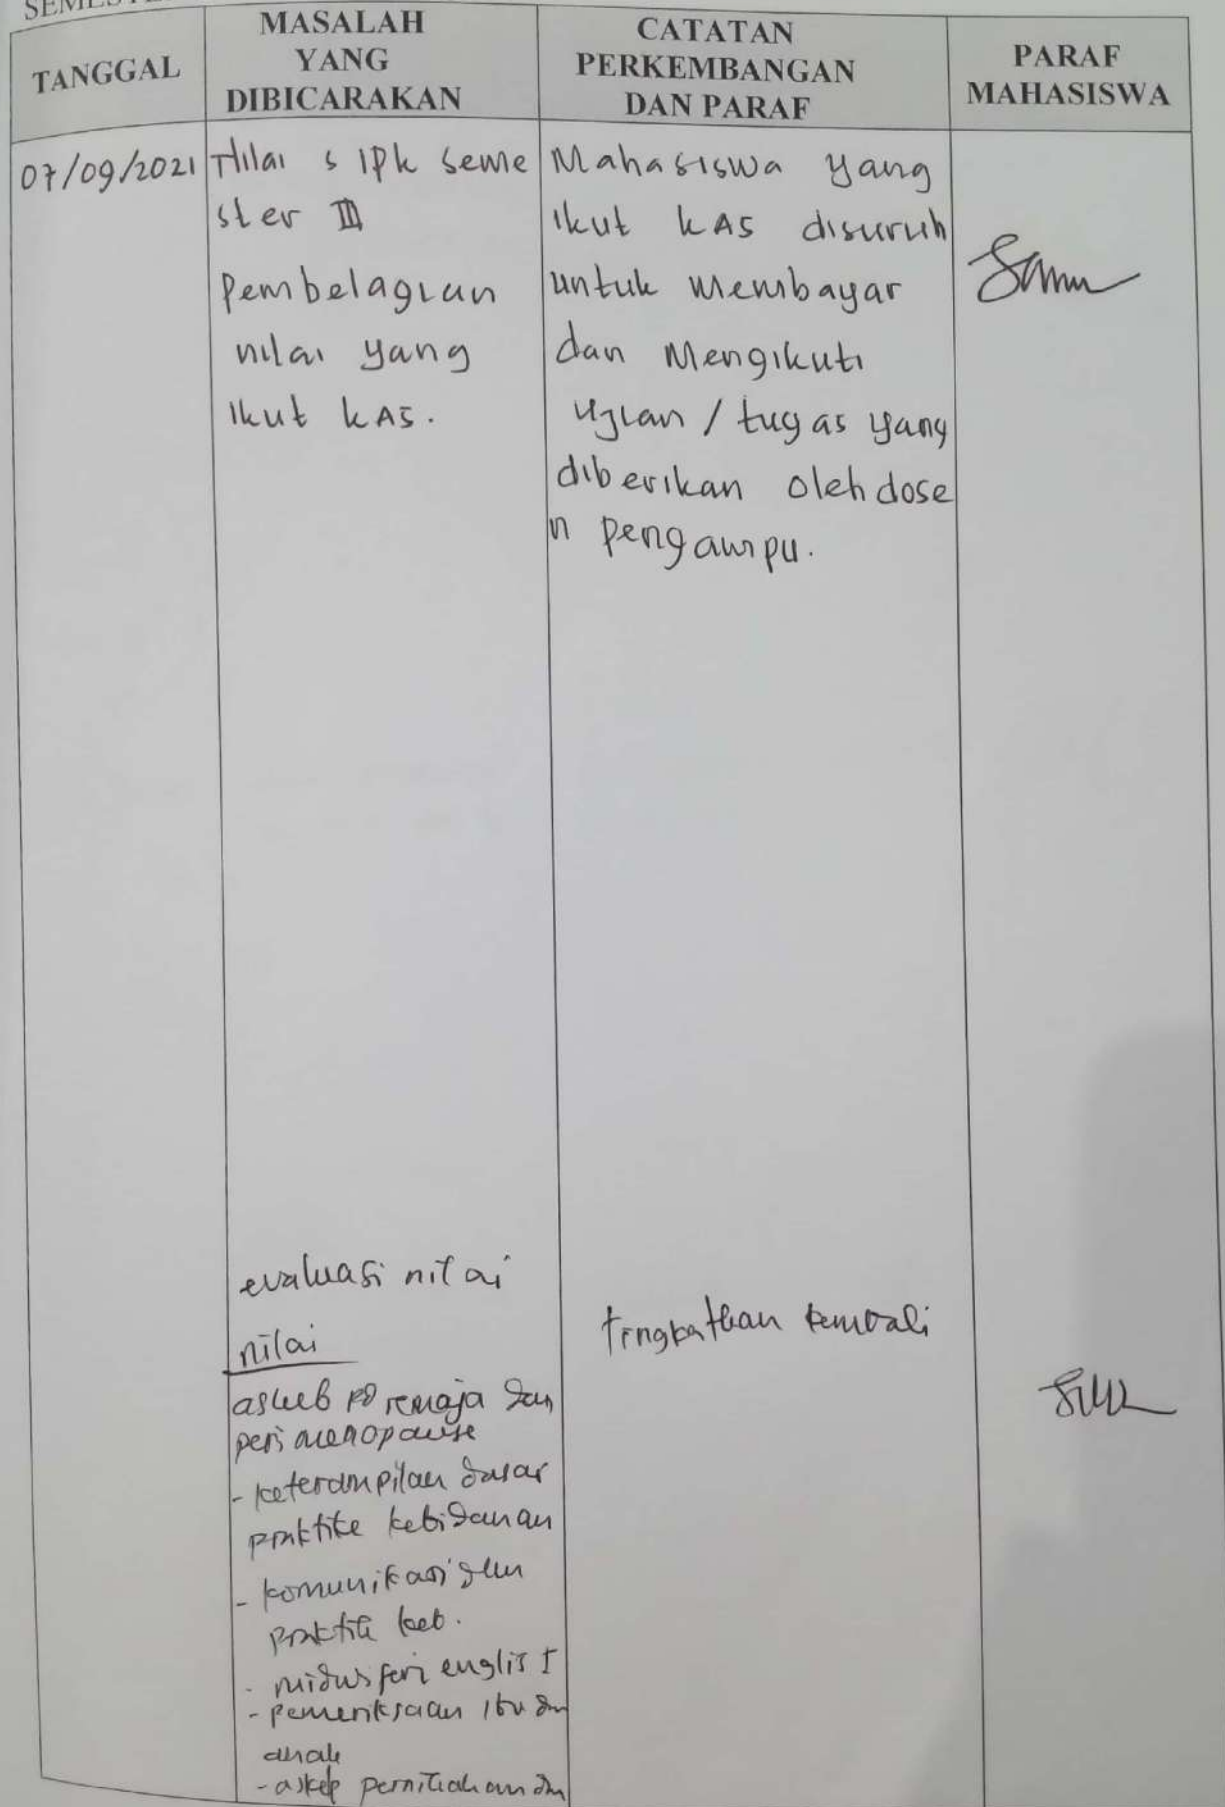 TANGGAL
MASALAH
YANG
DIBICARAKAN
CATATAN
PERKEMBANGAN
DAN PARAF
PARAF
MAHASISWA
07/09/2021
Nilai s IPK seme
ster III
Pembelagian
nilai yang
ikut KAS.
Mahasiswa yang
ikut KAS disuruh
untuk membayar
dan Mengikuti
ujian / tugas yang
diberikan oleh dose
n pengampu.
evaluasi nilai
nilai
askeb pd remaja dan
perimenopause
- keterampilan dasar
praktik kebidanan
- komunikasi dlm
praktik keb.
- midwiferi englis I
- pemeriksaan ibu dn
anak
- askeb pernikahan dn
tingkatkan kembali